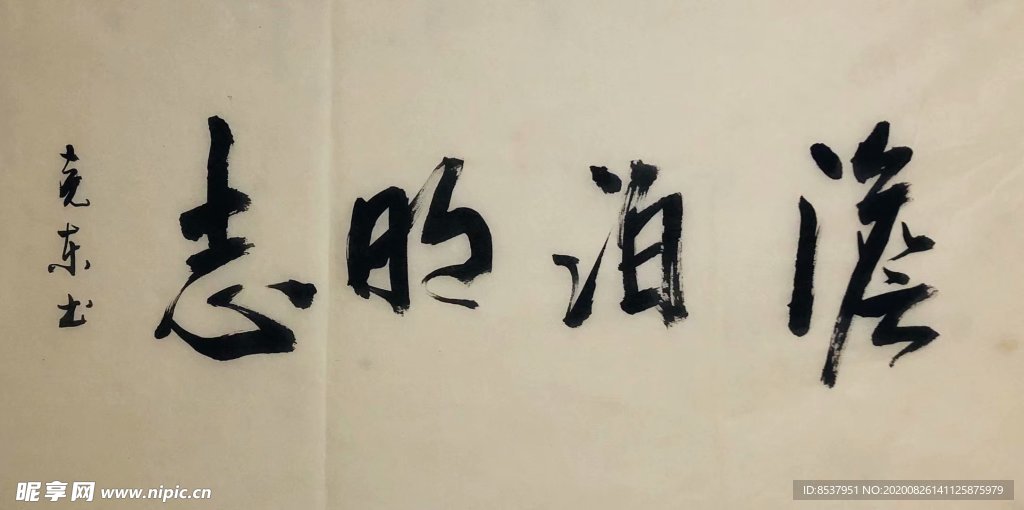 澹泊明志
尧东书
昵享网 www.nipic.cn
ID:8537951 NO:20200826141125875979